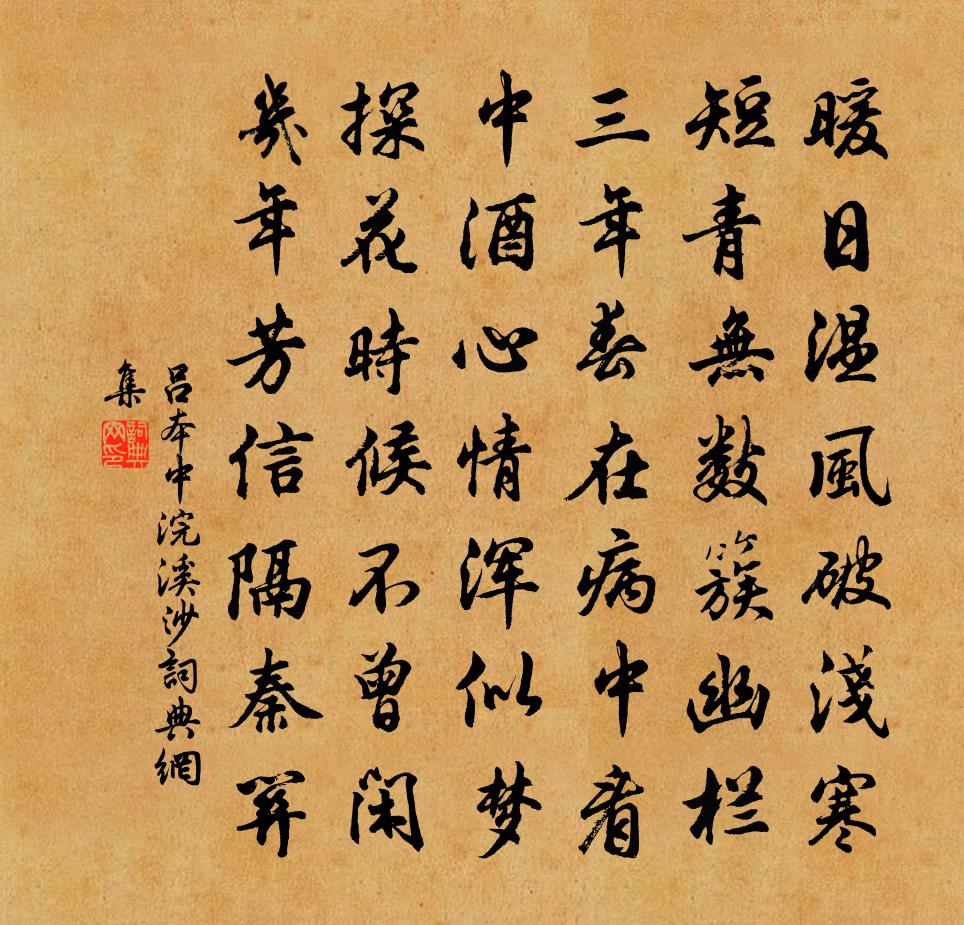 暖日温風破淺寒
短青無數簇幽栏
三年春在病中看
中酒心情渾似梦
探花時候不曾閑
幾年芳信隔秦關
吕本中浣溪沙詞典網
集
詞典網印